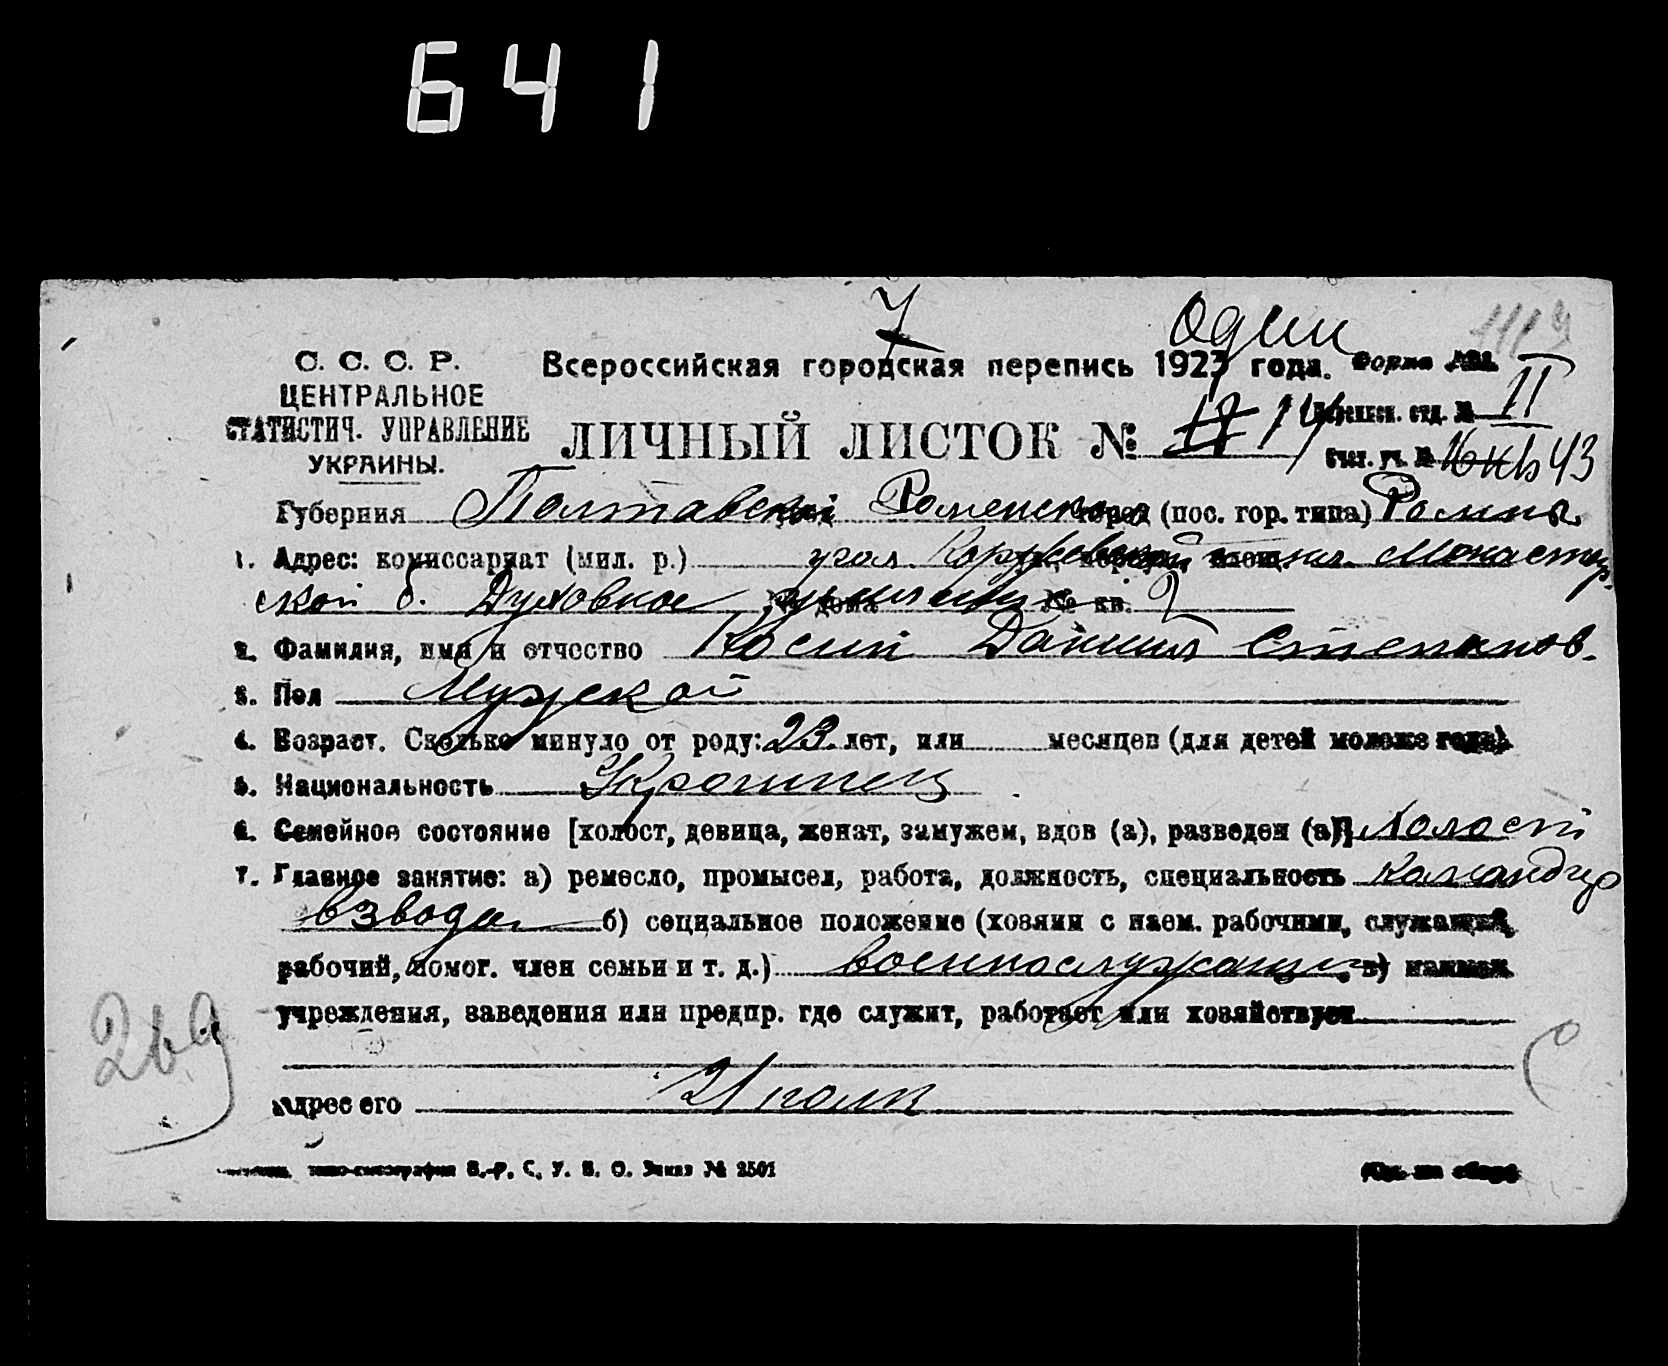 641
7 Один 1119
С. С. С. Р. Всероссийская городская перепись 1923 года. Форма
ЦЕНТРАЛЬНОЕ
СТАТИСТИЧ. УПРАВЛЕНИЕ ЛИЧНЫЙ ЛИСТОК № 17 14 отд. № II
УКРАИНЫ. Счет. уч. № 43
Губерния Полтавской Роменского город (пос. гор. типа) Ромны
1. Адрес: комиссариат (мил. р.) угол Монастыр
ской б. Духовное училище № кв. 2
2. Фамилия, имя и отчество Косий Даниил Степанов.
3. Пол Мужской
4. Возраст. Сколько минуло от роду: 23 лет, или месяцев (для детей моложе года).
5. Национальность Украинец
6. Семейное состояние [холост, девица, женат, замужем, вдов (а), разведен (а)] Холост
7. Главное занятие: а) ремесло, промысел, работа, должность, специальность Командир
взвода б) социальное положение (хозяин с наем. рабочими, служащий,
рабочий, помог. член семьи и т. д.) военнослужащий в) наимен.
учреждения, заведения или предпр. где служит, работает или хозяйствует
269
Адрес его 21 полк
типо-литография В.-Р. С. У. В. О. Заказ № 2501